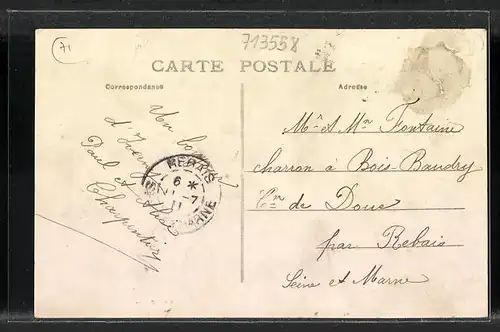 71
713558
CARTE POSTALE
Correspondance
Adresse
Un bonjour
d'
Paul et
Charpentier
REBAIS
6 *
7
11
MARNE
Mr et Mme Fontaine
charron à Bois-Baudry
Cne de Doue
par Rebais
Seine et Marne